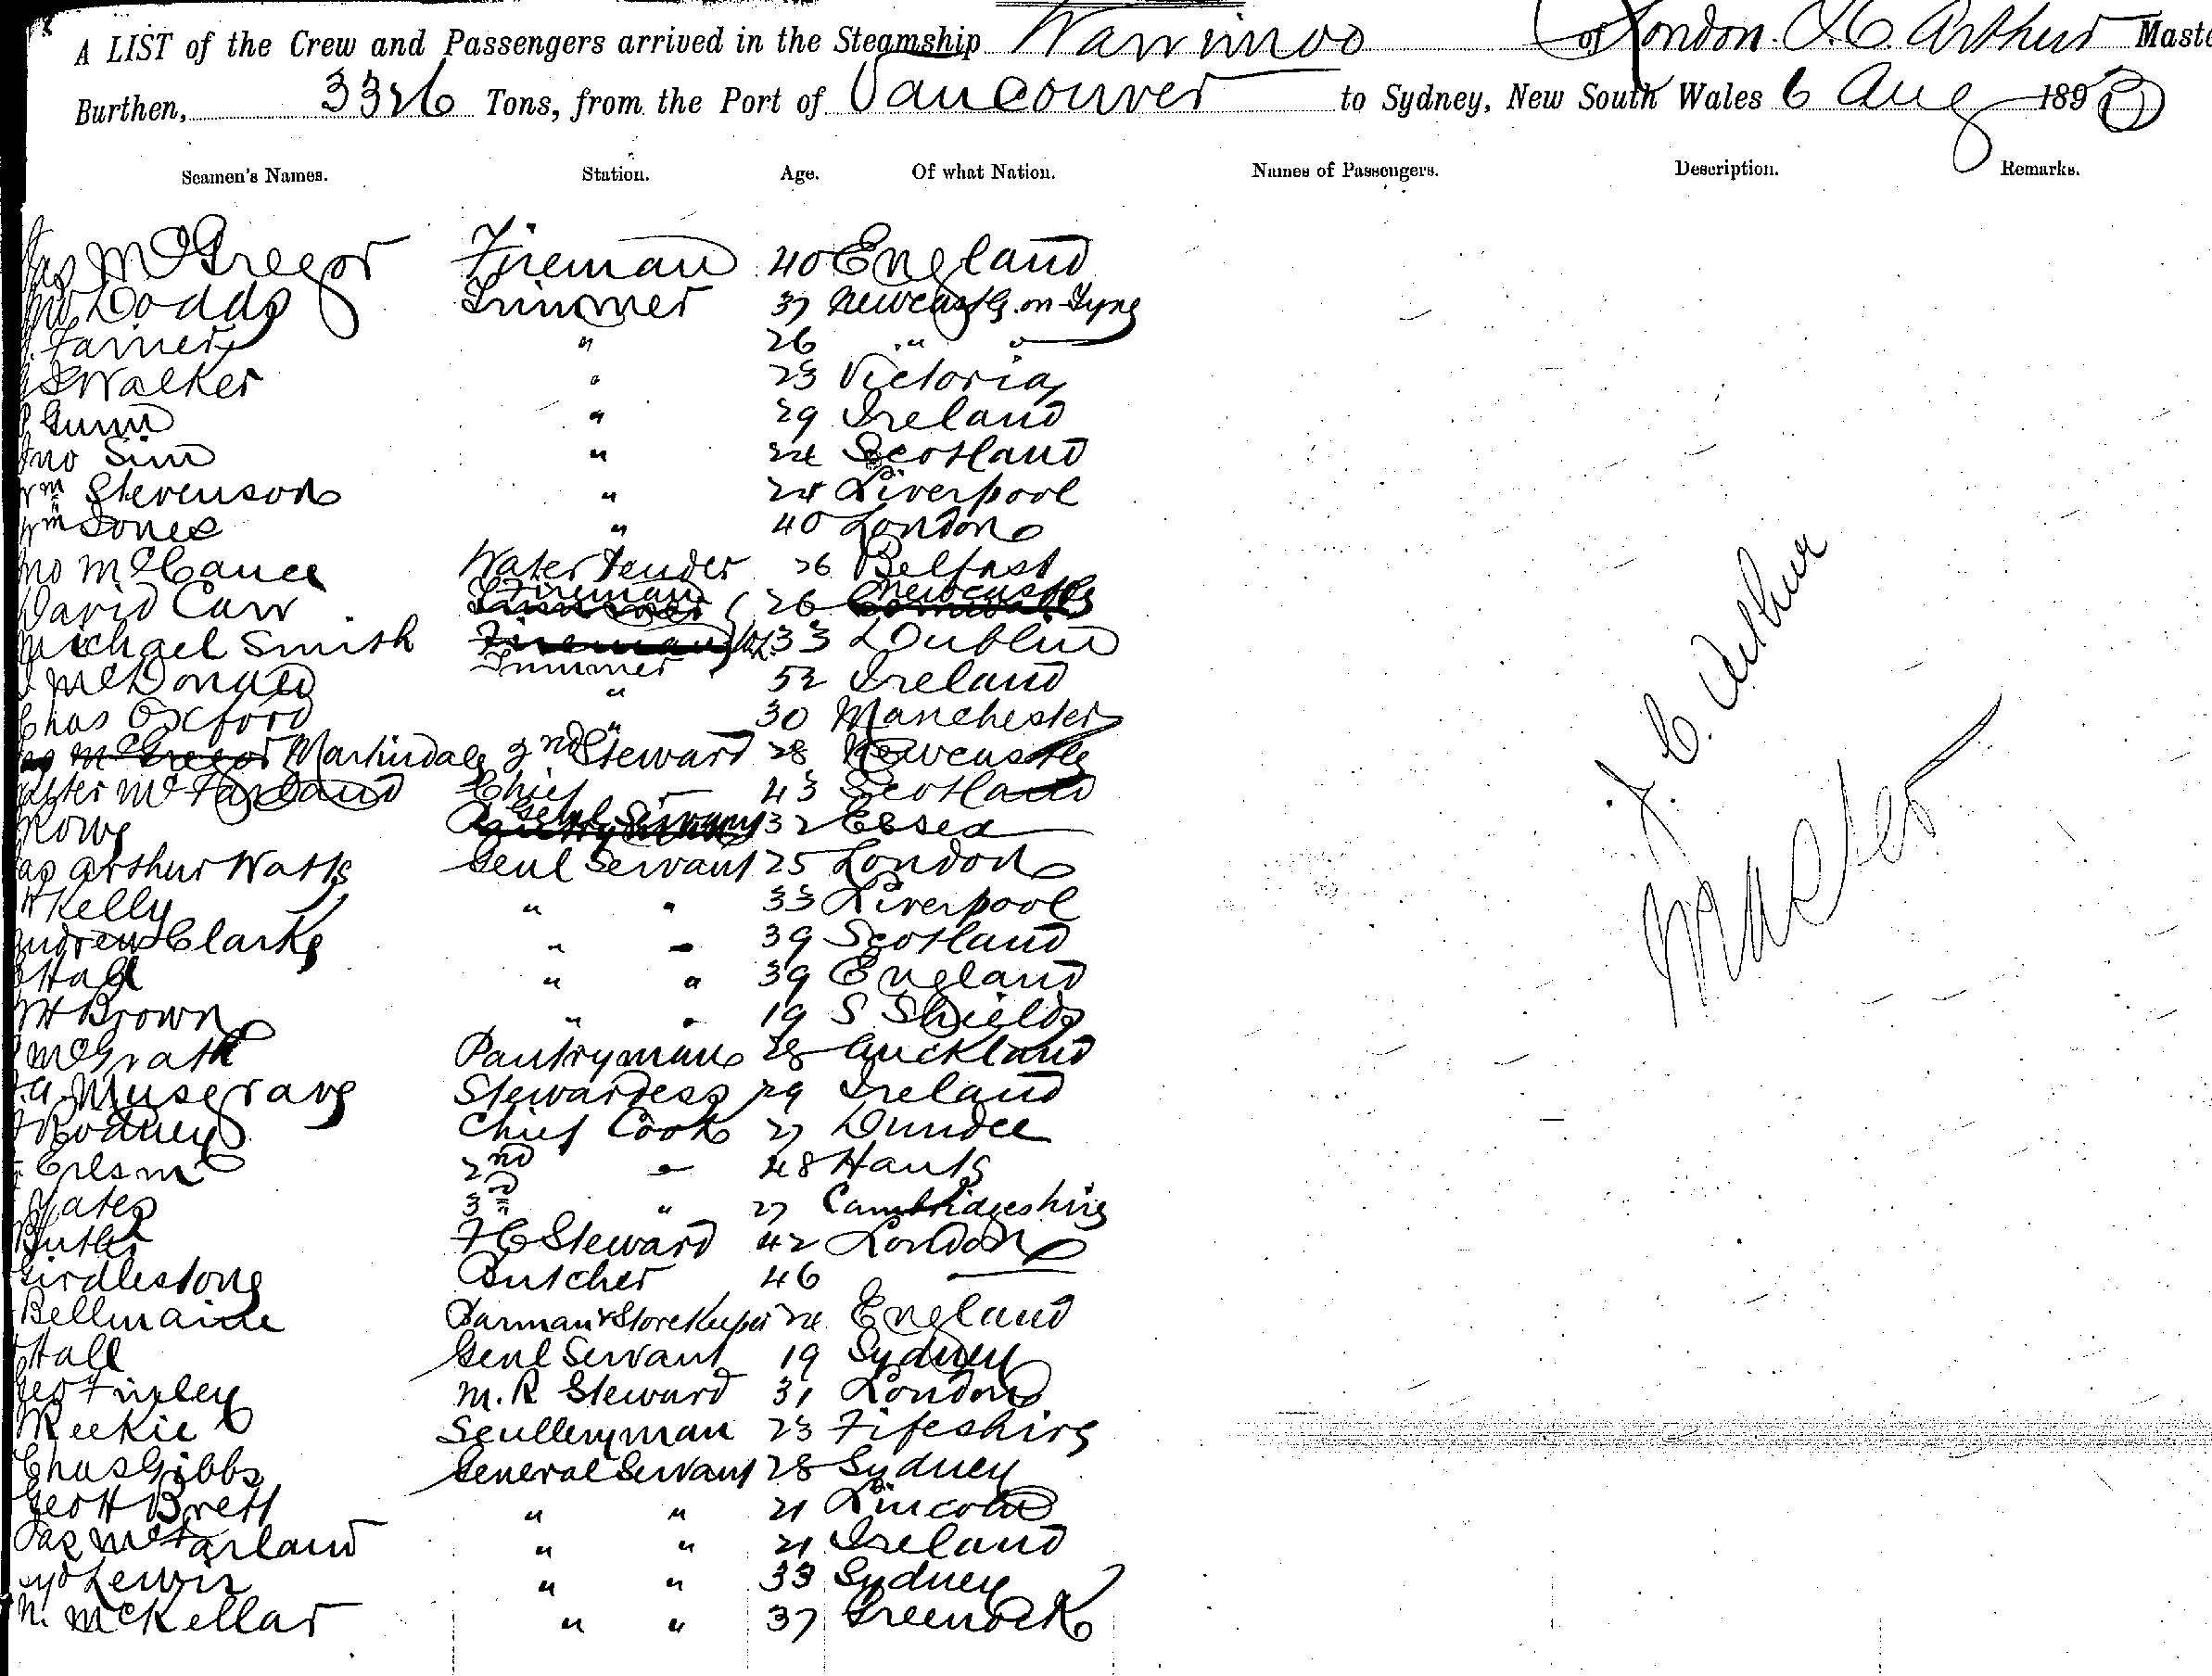 A LIST of the Crew and Passengers arrived in the Steamship Warrimoo of London. J. C. Arthur Maste
Burthen, 3326 Tons, from the Port of Vancouver to Sydney, New South Wales 6 Aug 189
Seamen's Names. Station. Age. Of what Nation. Names of Passengers. Description. Remarks.
Jas McGregor Fireman 40 England
Jno Dodds Trimmer 37 Newcastle on Tyne
Farrier " 26 " "
Walker " 23 Victoria
Gunn " 29 Ireland
Jno Sim " 24 Scotland
Wm Stevenson " 24 Liverpool
Wm Jones " 40 London
Jno McCance Water Tender 26 Belfast
David Carr Fireman 26 Newcastle
Michael Smith Trimmer 33 Dublin
McDonald " 52 Ireland
Chas Oxford " 30 Manchester
McGregor Martindale 2nd Steward 28 Newcastle
Walter McFarland Chief — 43 Scotland
Rowe Genl Servant 32 Essex
Jas Arthur Watts Genl Servant 25 London
Kelly " " 33 Liverpool
Andrew Clarke " " 39 Scotland
Hall " " 39 England
W H Brown " " 19 S Shields
McGrath Pantryman 28 Auckland
A. Musgrave Stewardess 29 Ireland
Rodney Chief Cook 27 Dundee
2nd " 48 Hants
Yates 3rd " 27 Cambridgeshire
Butler F C Steward 42 London
Girdlestone Butcher 46 —
Bellmaine Barman & Storekeeper 24 England
Hall Genl Servant 19 Sydney
Geo Finley M.R Steward 31 London
Reekie Sculleryman 23 Fifeshire
Chas Gibbs General Servant 28 Sydney
Geo H Brett " " 21 Lincoln
Jas McFarland " " 21 Ireland
Syd Lewis " " 33 Sydney
N. McKellar " " 37 Greenock
J. C. Arthur
Master